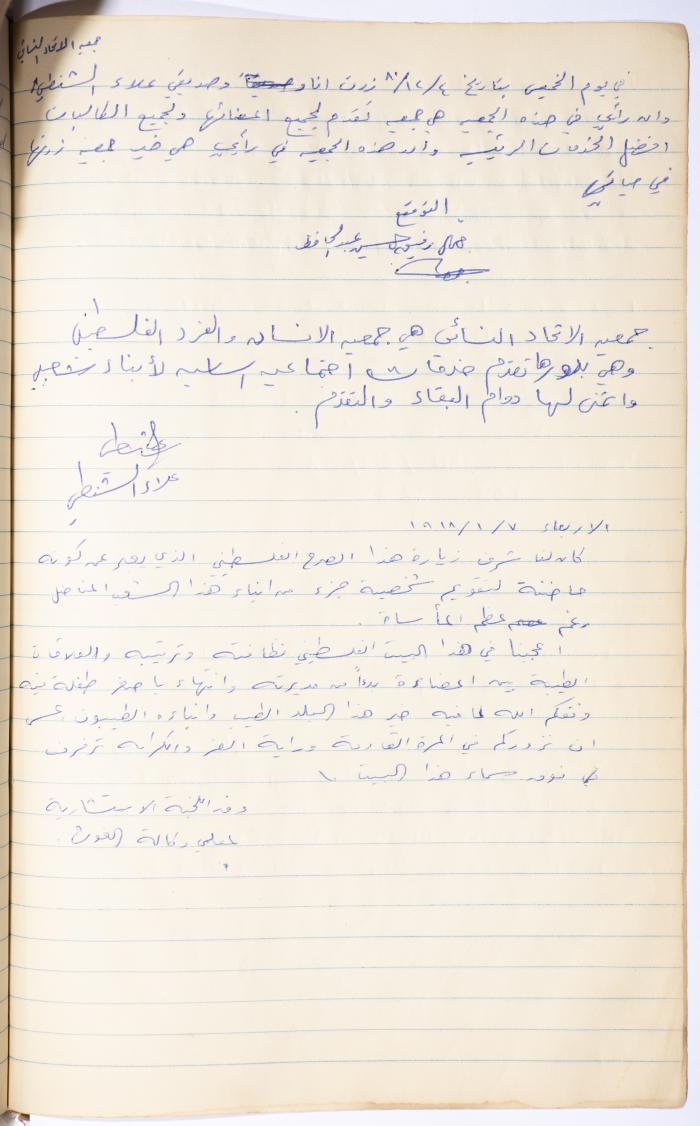 جمعيه الاتحاد النسائي
في يوم الخميس بتاريخ ٨٠/١٢/٤ زرت انا وصديقي علاء الشنطي
وان رأيي في هذه الجمعيه هي جمعيه تقدم لجميع اعضائها ولجميع الطالبات
افضل الخدمات الرئيسيه وان هذه الجمعيه في رأيي هي خير جمعيه زرتها
في حياتي
التوقيع
جمال رفيق حسين عبد الحافظ
جمعيه الاتحاد النسائي هي جمعيه الانسان والفرد الفلسطيني
وهي بدورها تقدم خدمات اجتماعيه انسانيه لأبناء شعبي
واتمنى لها دوام البقاء والتقدم.
علاء الشنطي
الاربعاء ١٩٨١/١/٧
كان لنا شرف زيارة هذا الصرح الفلسطيني الذي يعبر عن كونه
حاضنة لتقويم شخصية جزء من ابناء هذا الشعب المناضل
رغم عظم المأساة.
اعجبنا في هذا البيت الفلسطيني نظافته وترتيبه والعلاقات
الطيبة بين اعضاءه بدءاً من مديرته وانتهاء باصغر طفلة فيه
وفقكم الله لما فيه خير هذا البلد الطيب وابناءه الطيبون عسى
ان نزوركم في المرة القادمة وراية العز والكرامه ترفرف
في سماء هذا البيت.
وفد اللجنة الاستشارية
لمعلمي وكالة الغوث.